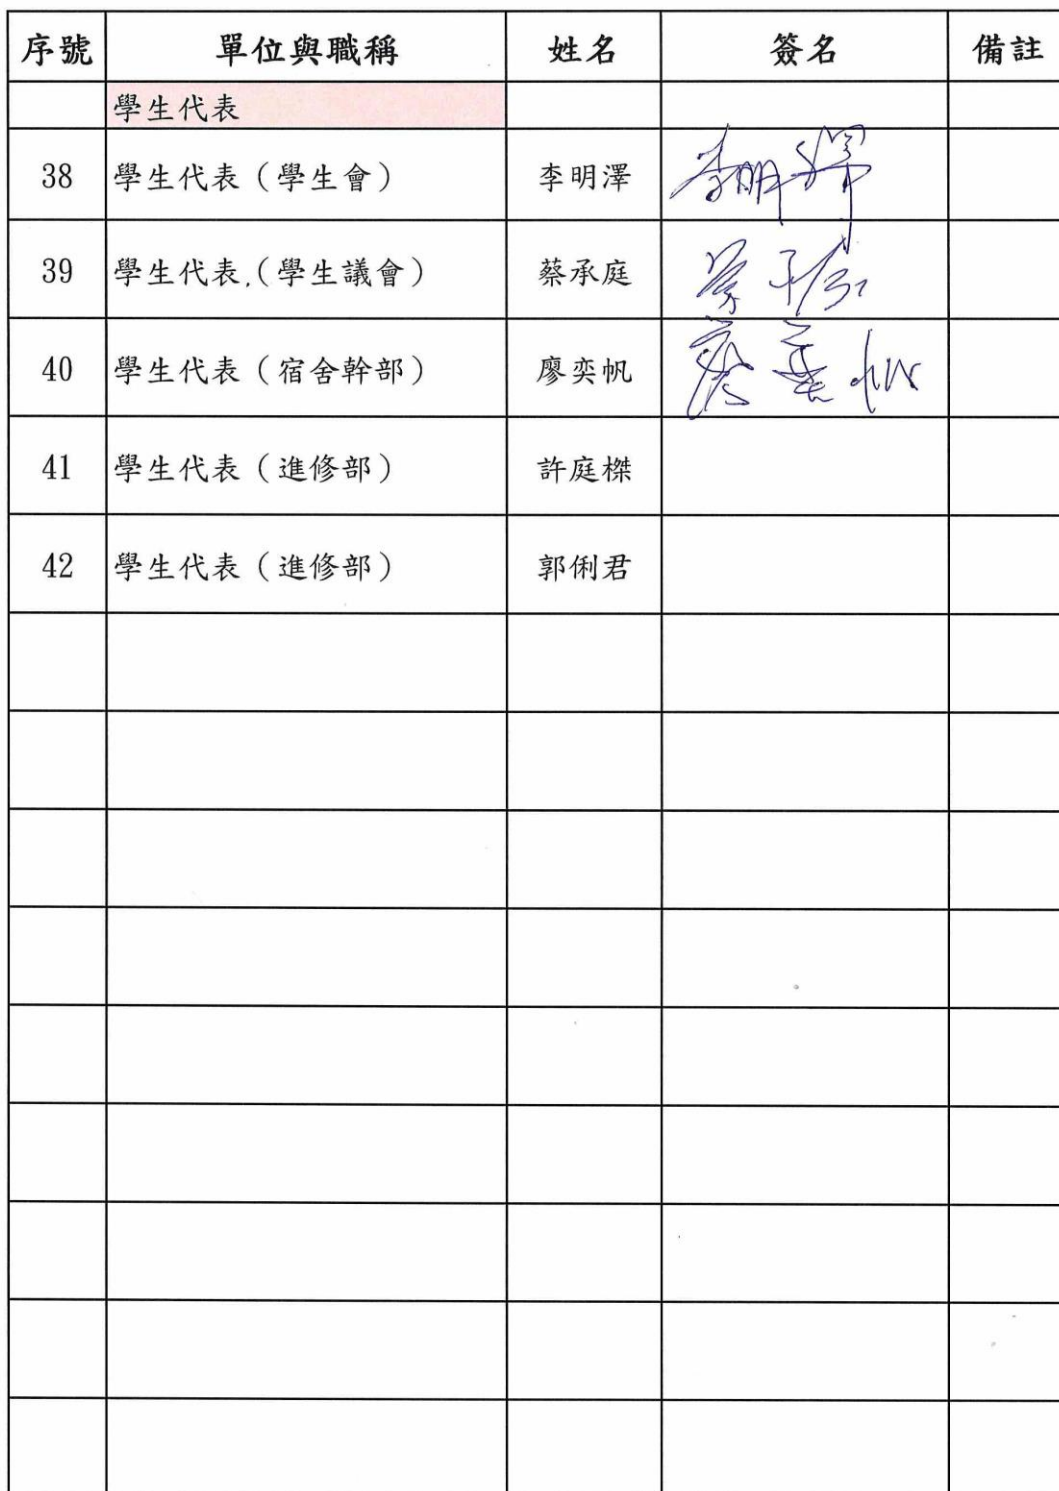 序號 單位與職稱 姓名 簽名 備註
學生代表
38 學生代表（學生會） 李明澤 李明澤
39 學生代表.（學生議會） 蔡承庭
40 學生代表（宿舍幹部） 廖奕帆 廖奕帆
41 學生代表（進修部） 許庭榤
42 學生代表（進修部） 郭俐君